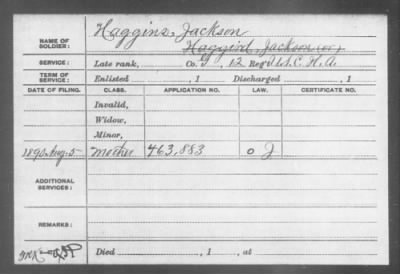 NAME OF SOLDIER: Haggins, Jackson
Haggird, Jackson (or)
SERVICE: Late rank, Co. , 12 Reg't U.S.C.H.A.
TERM OF SERVICE: Enlisted , 1 Discharged , 1
DATE OF FILING. CLASS. APPLICATION NO. LAW. CERTIFICATE NO.
Invalid,
Widow,
Minor,
1890 Aug. 5 Mother 463,883
ADDITIONAL SERVICES:
REMARKS:
Died , 1 , at